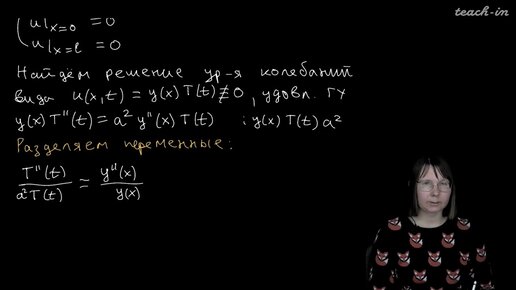 teach-in
u|x=0 = 0
u|x=l = 0
Найдём решение ур-я колебаний
вида u(x,t) = y(x) T(t) ≢ 0, удовл. ГУ
y(x) T''(t) = a² y''(x) T(t) : y(x) T(t) a²
Разделяем переменные:
T''(t)/a²T(t) = y''(x)/y(x)